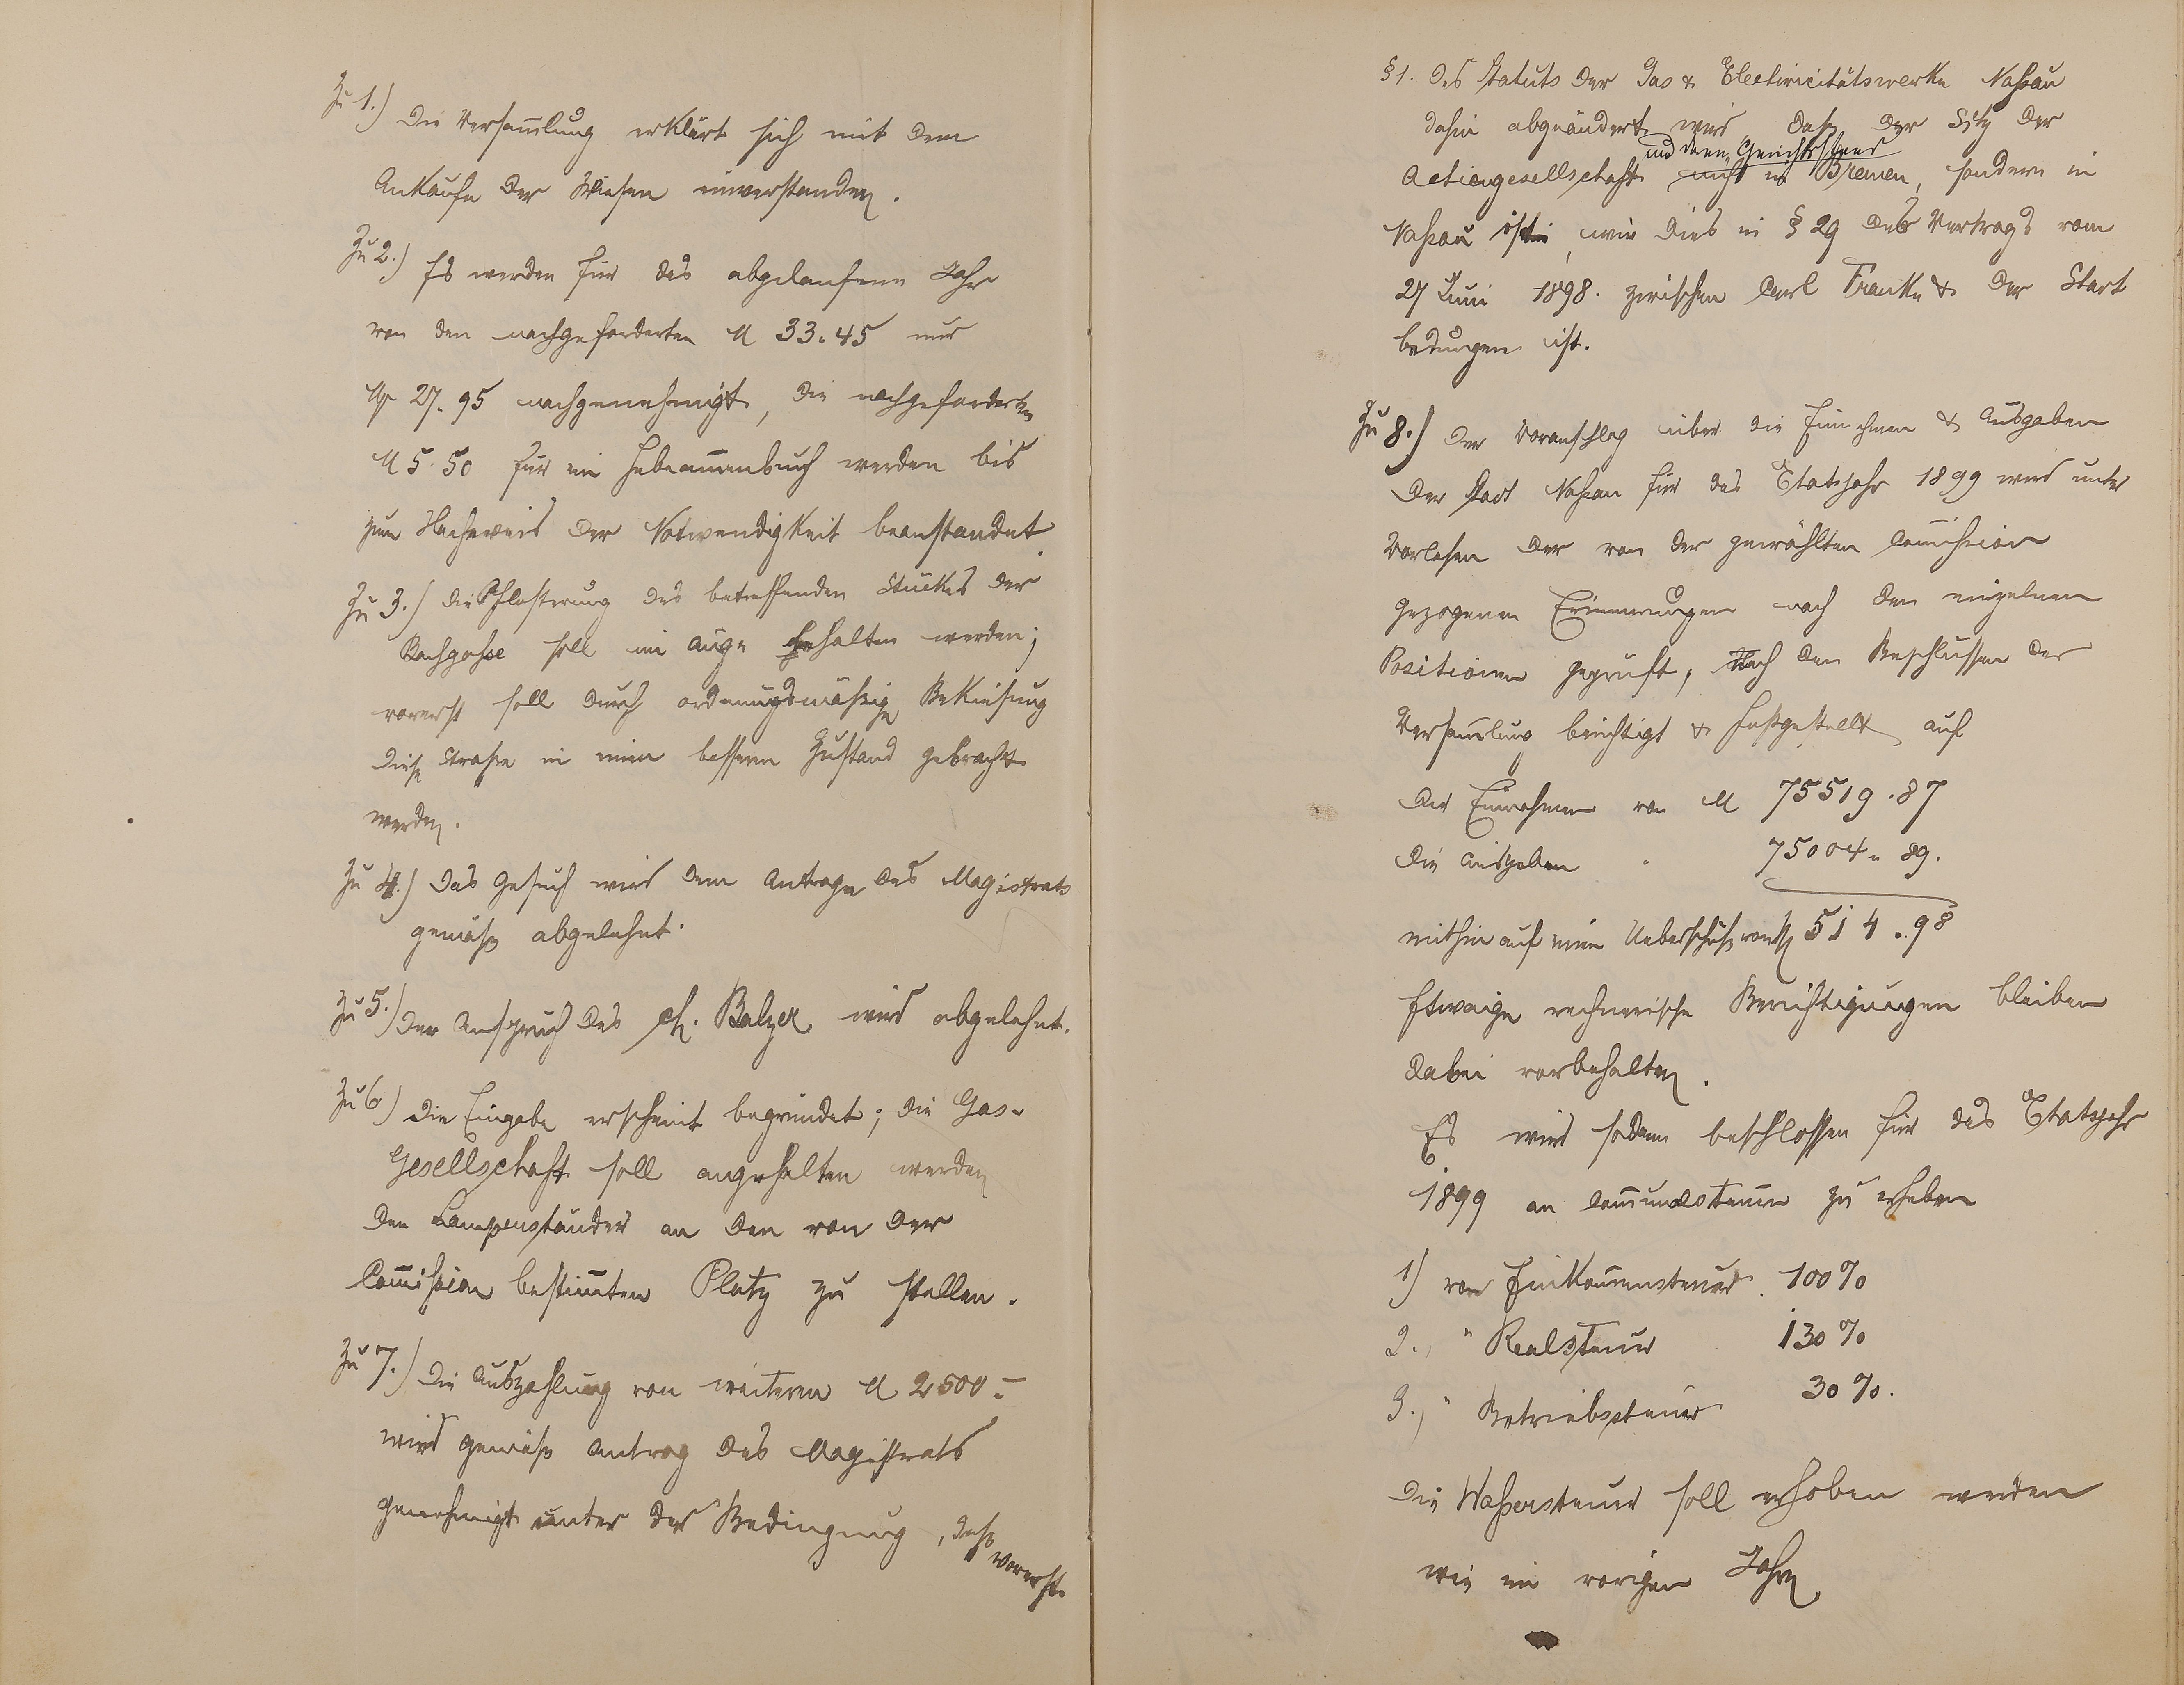 Zu 1.) Die Versam̅lung erklärt sich mit dem
Ankaufe der Wiesen einverstanden.
Zu 2.) Es werden für das abgelaufene Jahr
von den nachgeforderten M 33.45 nur
M 27.95 nachgenehmigt, die nachgeforderten
M 5.50 für ein Hebeam̅enbuch werden bis
zum Nachweis der Notwendigkeit beanstandet.
Zu 3.) Die Pflasterung des betreffenden Stückes der
Bachgasse soll im Auge behalten werden;
vorerst soll durch ordnungsmäßige Bekiesung
diese Straße in einen besseren Zustand gebracht
werden.
Zu 4.) Das Gesuch wird dem Antrage des Magistrats
gemäß abgelehnt.
Zu 5.) Der Anspruch des Balzer wird abgelehnt.
Zu 6) Die Eingabe erscheint begründet; die Gas-
Gesellschaft soll angehalten werden
den Lampenständer an den von der
Com̅ission bestim̅ten Platz zu stellen.
Zu 7.) Die Auszahlung von weiteren M 2500.-
wird gemäß Antrag des Magistrats
genehmigt unter der Bedingung, daß
vorerst
§ 1. des Statuts der Gas & Electricitätswerke Nassau
dahin abgeändert wird, daß der Sitz der
und deren Gerichtsstand
Actiengesellschaft nicht in Bremen, sondern in
Nassau ist, wie dies in § 29 des Vertrags vom
27 Juni 1898. zwischen Carl Franke & der Stadt
bedungen ist.
Zu 8.) Der Voranschlag über die Einnahmen & Ausgaben
der Stadt Nassau für das Etatsjahr 1899 wird unter
Vorlesen der von der gewählten Com̅ission
gezogenen Erinnerungen nach den einzelnen
Positionen geprüft, nach den Beschlüssen der
Versam̅lung berichtigt & festgestellt auf
Die Einnahmen von M 75519.87
Die Ausgaben " 75004.89.
mithin auf einen Ueberschuß von M 514.98
Etwaige rechnerische Berichtigungen bleiben
dabei vorbehalten.
Es wird sodann beschlossen für das Etatsjahr
1899 an Com̅unalsteuern zu erheben
1) von Einkom̅ensteuer 100 %
2., " Realsteuer 130 %
3., " Betriebssteuer 30 %.
Die Wassersteuer soll erhoben werden
wie im vorigen Jahre.